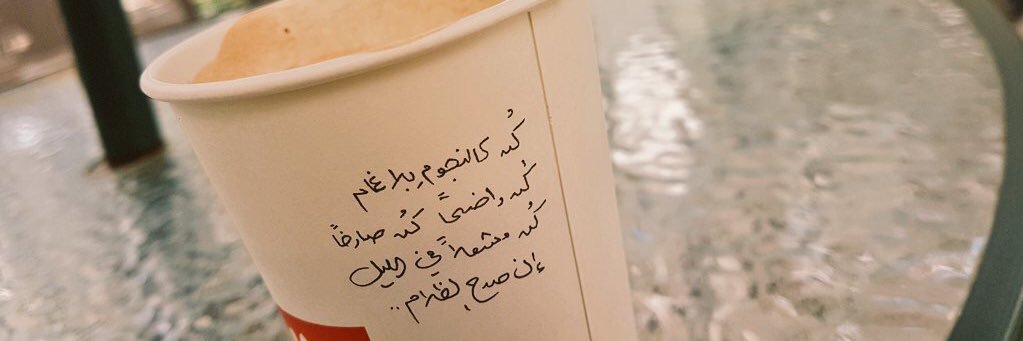 كُن كالنجوم بلا غمام
كُن واضحاً كُن صادقاً
كُن مشعلاً في الليل
إن صدح الظلام..